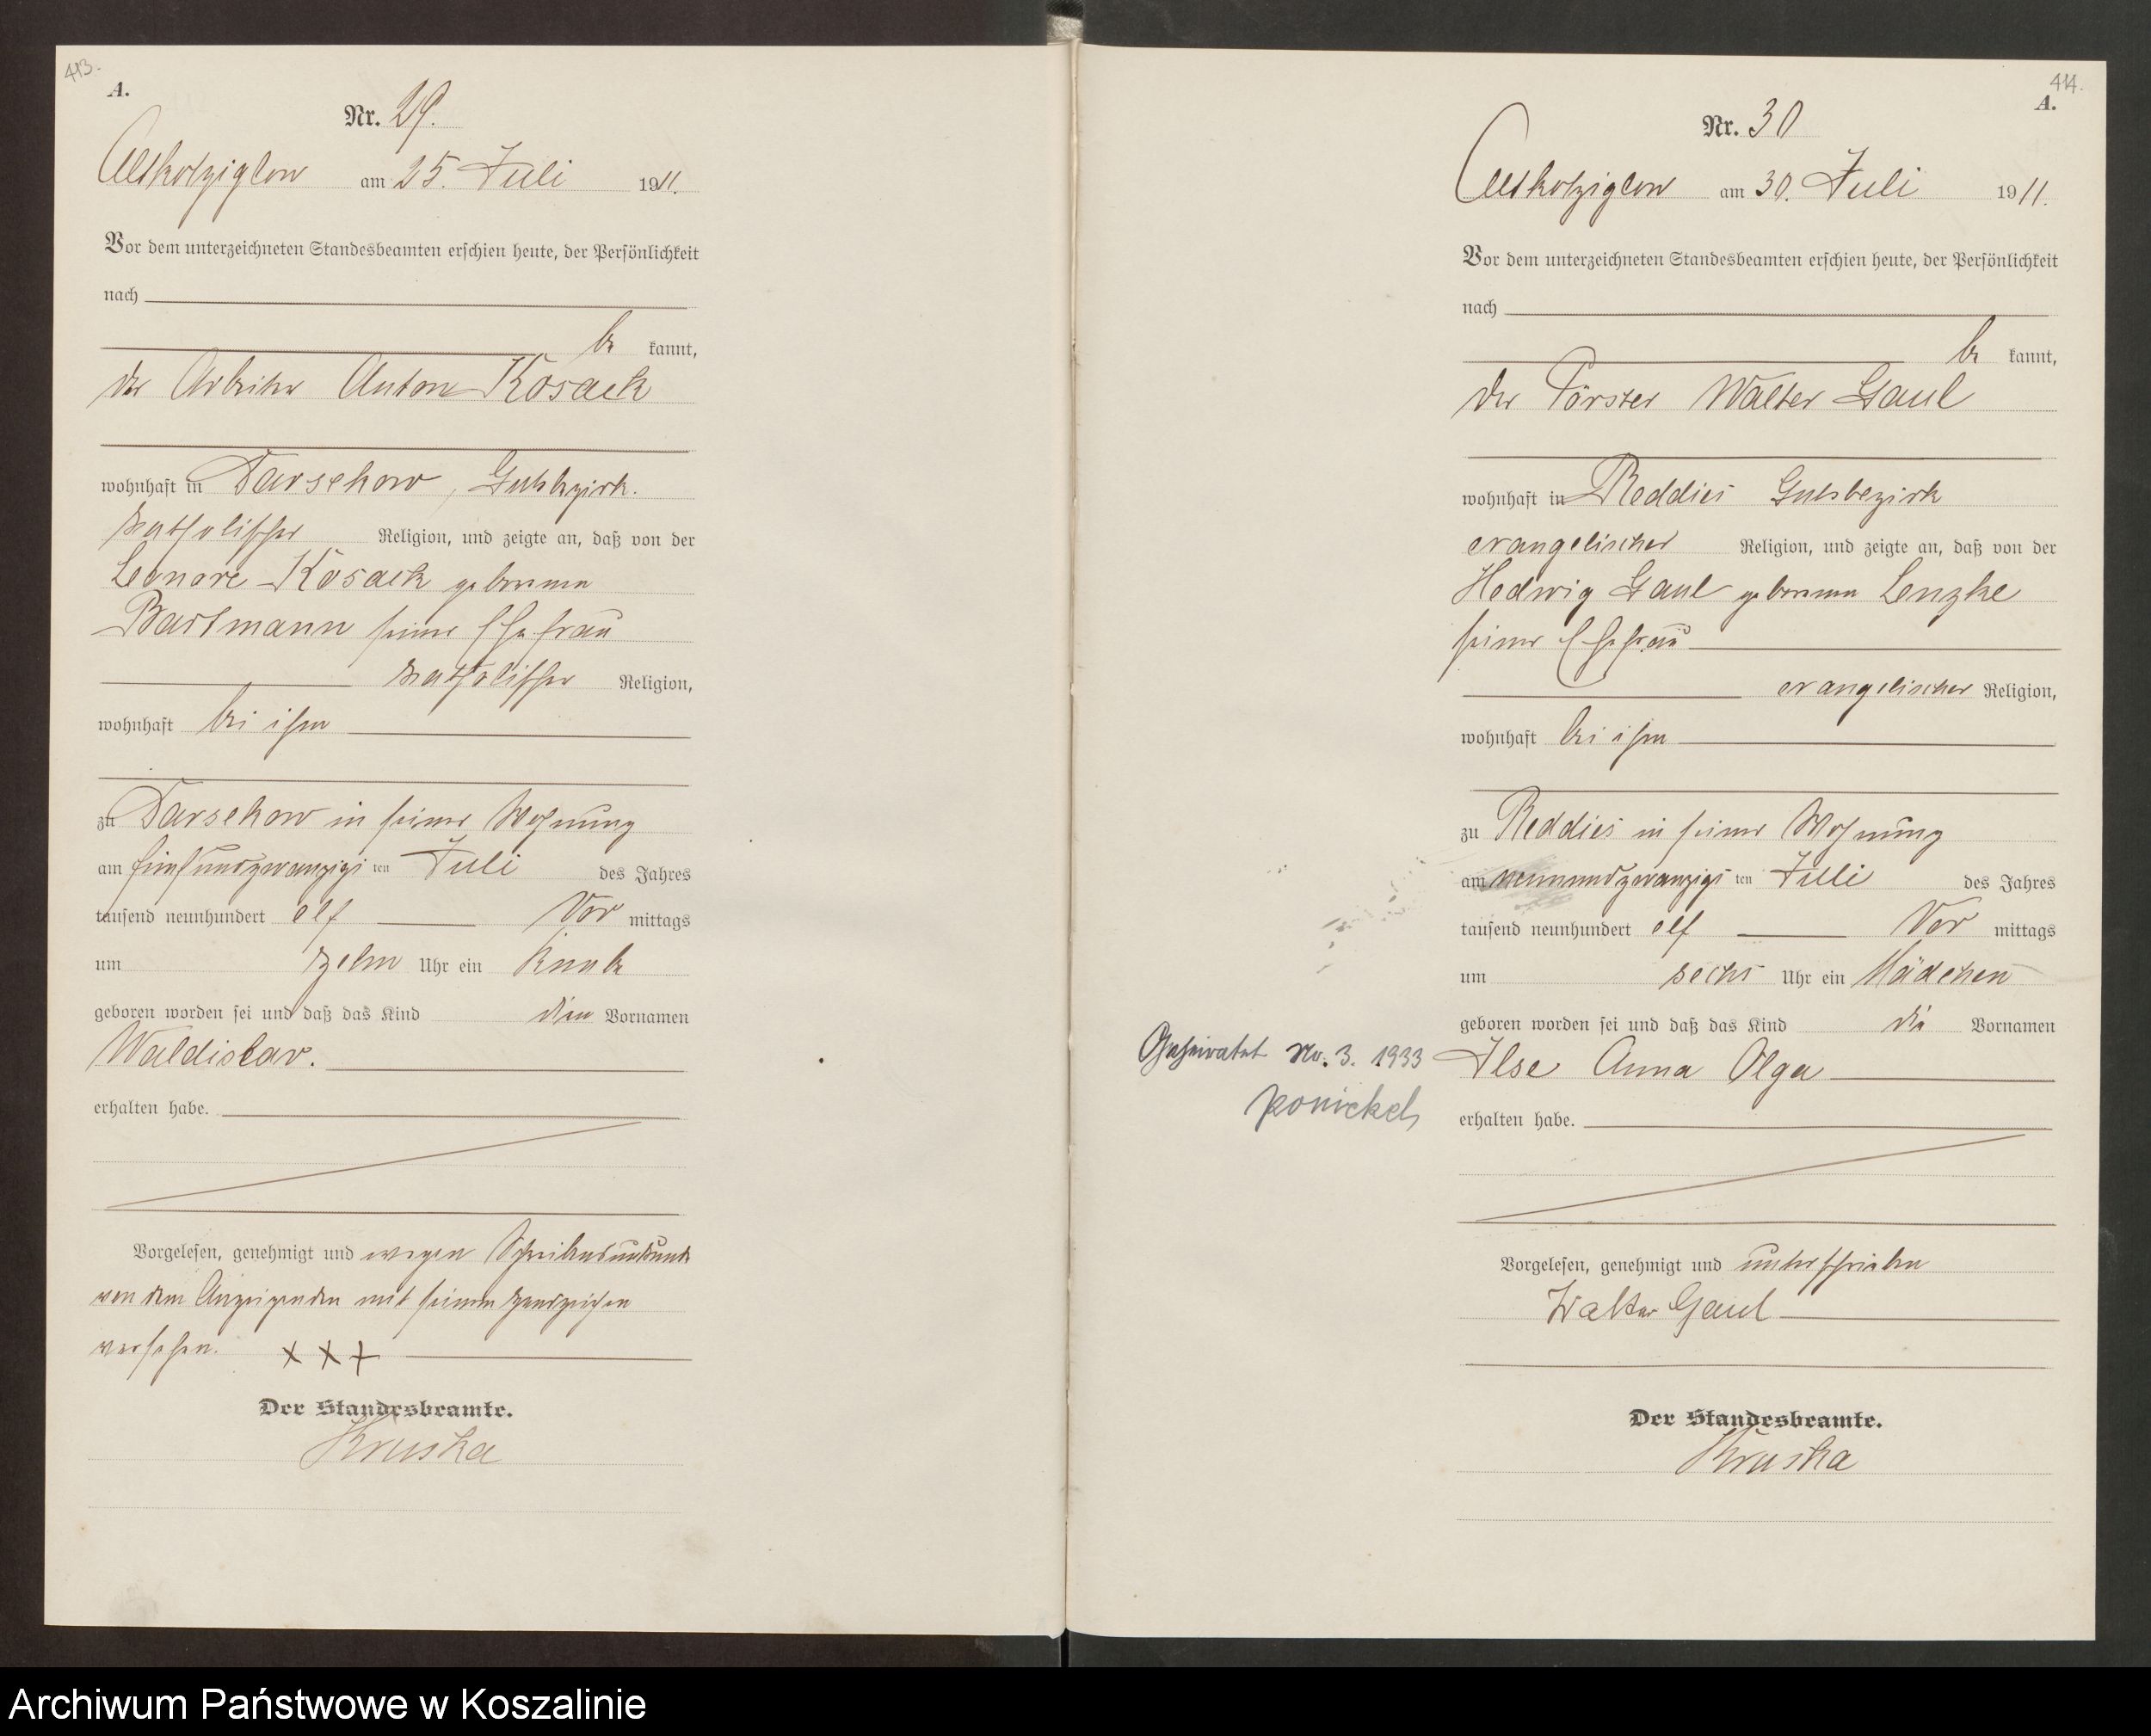 413.
A.
Nr. 29.
Altkolziglow am 25. Juli 1911.
Vor dem unterzeichneten Standesbeamten erschien heute, der Persönlichkeit
nach
be kannt,
der Arbeiter Anton Kosack
wohnhaft in Darsekow, Gutsbezirk.
katholischer Religion, und zeigte an, daß von der
Leonore Kosack geborenen
Bartmann seiner Ehefrau
katholischer Religion,
wohnhaft bei ihm
zu Darsekow in seiner Wohnung
am fünfundzwanzigs ten Juli des Jahres
tausend neunhundert elf Vor mittags
um zehn Uhr ein Knabe
geboren worden sei und daß das Kind den Vornamen
Waldislav.
erhalten habe.
Vorgelesen, genehmigt und wegen Schreibensunkunde
von dem Anzeigenden mit seinem Handzeichen
versehen. x x x
Der Standesbeamte.
Kruska
414.
A.
Nr. 30
Altkolziglow am 30. Juli 1911.
Vor dem unterzeichneten Standesbeamten erschien heute, der Persönlichkeit
nach
be kannt,
der Förster Walter Gaul
wohnhaft in Reddies Gutsbezirk
evangelischer Religion, und zeigte an, daß von der
Hedwig Gaul geborenen Lenzke
seiner Ehefrau
evangelischer Religion,
wohnhaft bei ihm
zu Reddies in seiner Wohnung
am neunundzwanzigs ten Juli des Jahres
tausend neunhundert elf Vor mittags
um sechs Uhr ein Mädchen
geboren worden sei und daß das Kind die Vornamen
Geheiratet Nr. 3. 1933
Ponickel
Ilse Anna Olga
erhalten habe.
Vorgelesen, genehmigt und unterschrieben
Walter Gaul
Der Standesbeamte.
Kruska
Archiwum Państwowe w Koszalinie